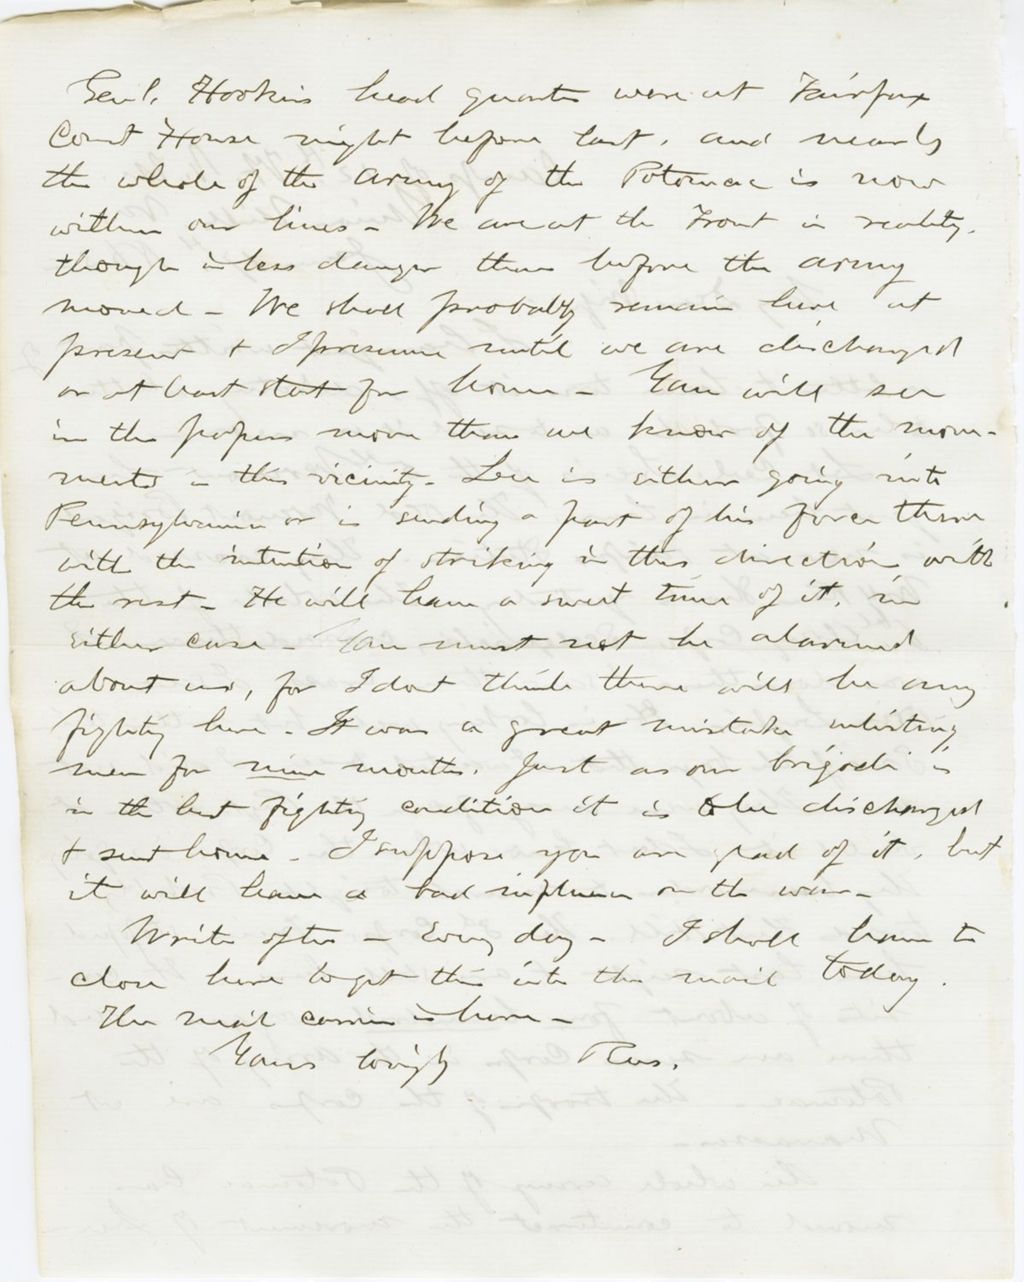 Genl. Hookers head quarters were at Fairfax
Court House night before last, and nearly
the whole of the Army of the Potomac is now
within our lines - We are at the Front in reality,
though in less danger than before the army
moved - We shall probably remain here at
present & I presume until we are discharged
or at least start for home - You will see
in the papers more than we know of the move-
ments in this vicinity - Lee is either going into
Pennsylvania or is sending a part of his force there
with the intention of striking in this direction with
the rest - He will have a sweet time of it, in
either case - You must not be alarmed
about us, for I dont think there will be any
fighting here - It was a great mistake enlisting
men for nine months. Just as our brigade is
in the best fighting condition it is to be discharged
& sent home - I suppose you are glad of it, but
it will have a bad influence on the war -
Write often - Every day - I shall have to
close here to get this into the mail today.
The mail carrier is here -
Yours lovingly Ros.